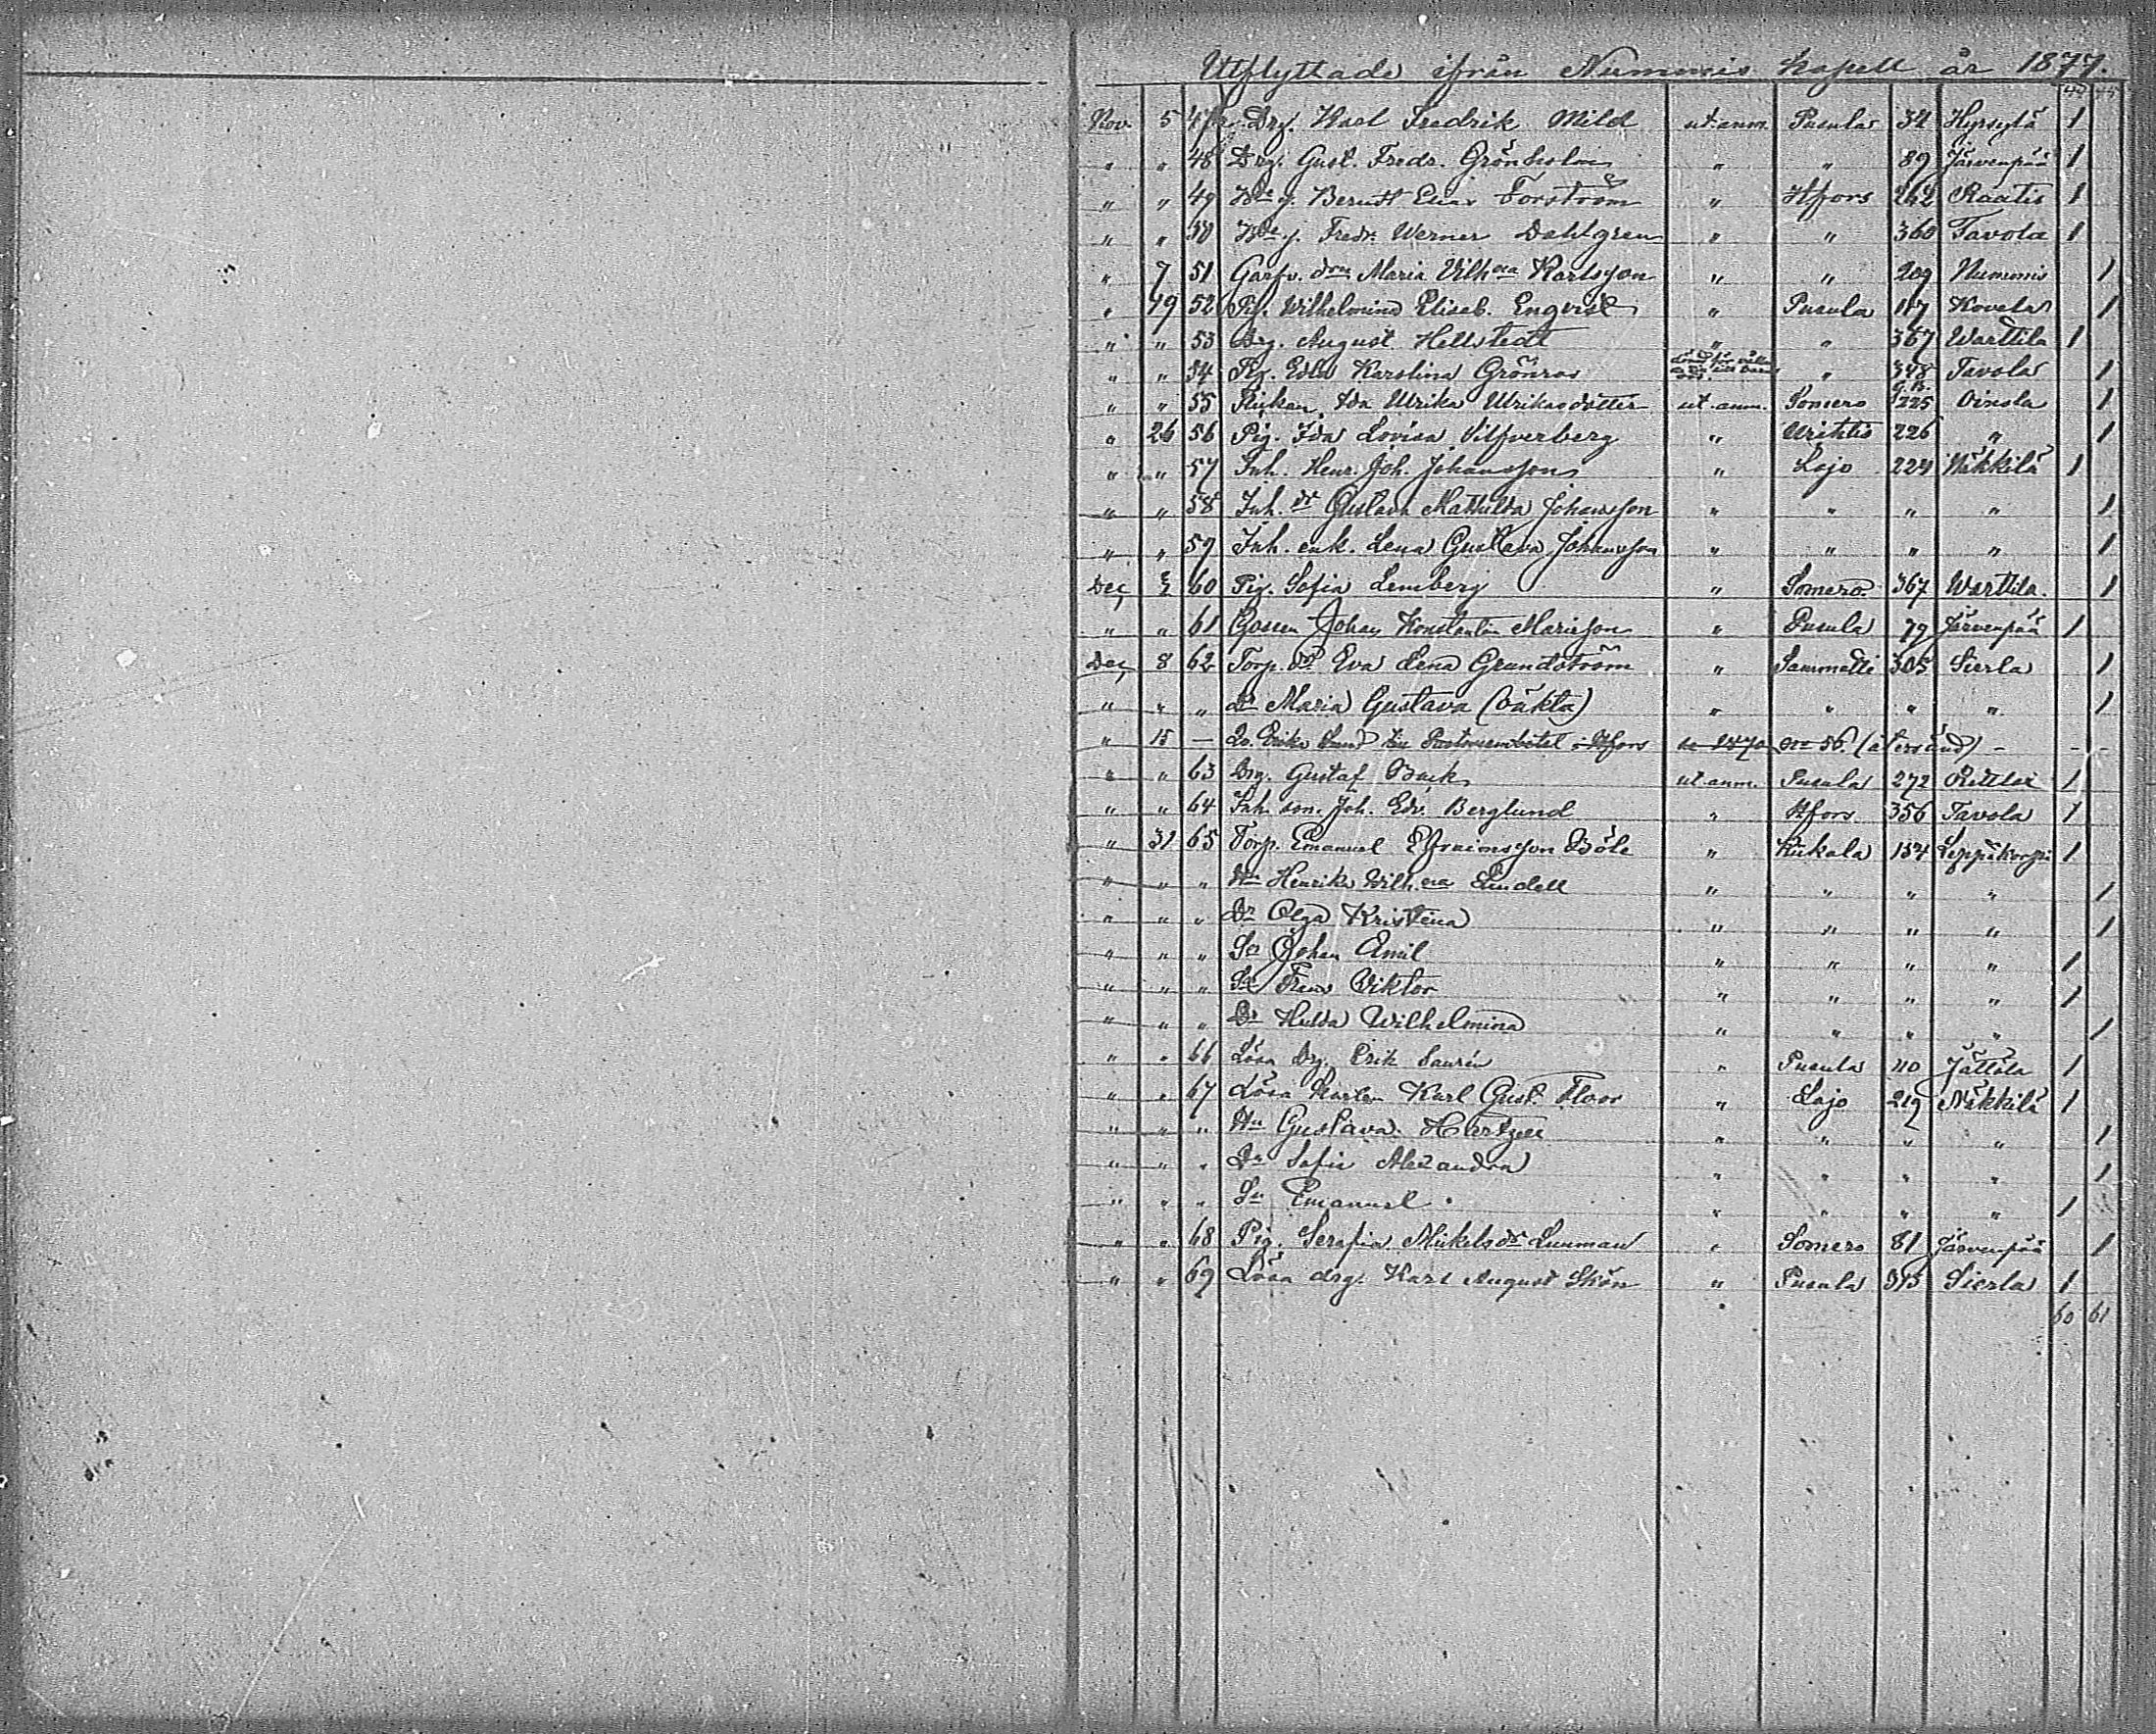 Utflyttade ifrån Nummis kapell år 1877.
Nov. 5 47 Drg. Karl Fredrik Mild ut. anm. Pusula 34 Hyrsylä 1
" " 48 Drg. Gust. Fredr. Grönholm " " 89 Järvenpää 1
" " 49 Berndt Forström " Hfors 262 Raatis 1
" " 50 Fredr. Werner Dahlgren " " 360 Tavola 1
" 7 51 Garfv. Maria Vilhna Karlsson " " 209 Nummis 1
" 19 52 Pig. Wilhelmina Elisab. Engvist " Pusula 117 Kovela 1
" " 53 Drg. August Hellstedt " " 367 Warttila 1
" " 54 Pig. Edla Karolina Grönros " 348 Tavola 1
" " 55 Flickan Ida Ulrika Ulrikasdotter ut. anm. Somero 225 Oinola 1
" 26 56 Pig. Ida Lovisa Silfverberg " 226 " 1
" " 57 Inh. Henr. Joh. Johansson " Lojo 224 Näkkilä 1
" " 58 Inh. dr Gustava Mathilda Johansson " " " " 1
" " 59 Inh. enk. Lena Gustava Johansson " " " " 1
Dec. 60 Pig. Sofia Lemberg " Somero 367 Warttila. 1
" " 61 Gossen Johan Konstantin Mariesson " Pusula 79 Järvenpää 1
Dec. 8 62 Torp. dr Eva Lena Grundström " Sammatti 305 Sierla 1
" " " dr Maria Gustava (oäkta) " " " " 1
" 15 — Erika till Pastorsembetet i Hfors 1870 No 56. (återsänd) — - -
" " 63 Drg. Gustaf Back ut. anm. Pusula 272 1
" " 64 Inh. son. Joh. Edv. Berglund " Hfors 356 Tavola 1
" 31 65 Torp. Emanuel Efraimsson Böle " Kiikala 154 Leppäkorpi 1
" " " Hu Henrika Wilh.na Lindell " " " " 1
" " " Dr Olga Kristina " " " " 1
" " " Sn Johan Emil " " " " 1
" " " Sn Frans Viktor " " " " 1
" " " Dr Hulda Wilhelmina " " " " 1
" " 66 Lösa Drg. Erik Saurén " Pusula 110 Jättölä 1
" " 67 Lösa Karlen Karl Gust. Floor " Lojo 219 Näkkilä 1
" " " Hu Gustava Hertzell " " " " 1
" " " Dr Sofia Alexandra " " " " 1
" " " Sn Emanuel " " " " 1
" " 68 Pig. Serafia Mikels dr Lunman " Somero 81 Järvenpää 1
" " 69 Lösa drg. Karl August Skön " Pusula 315 Sierla 1
60 61